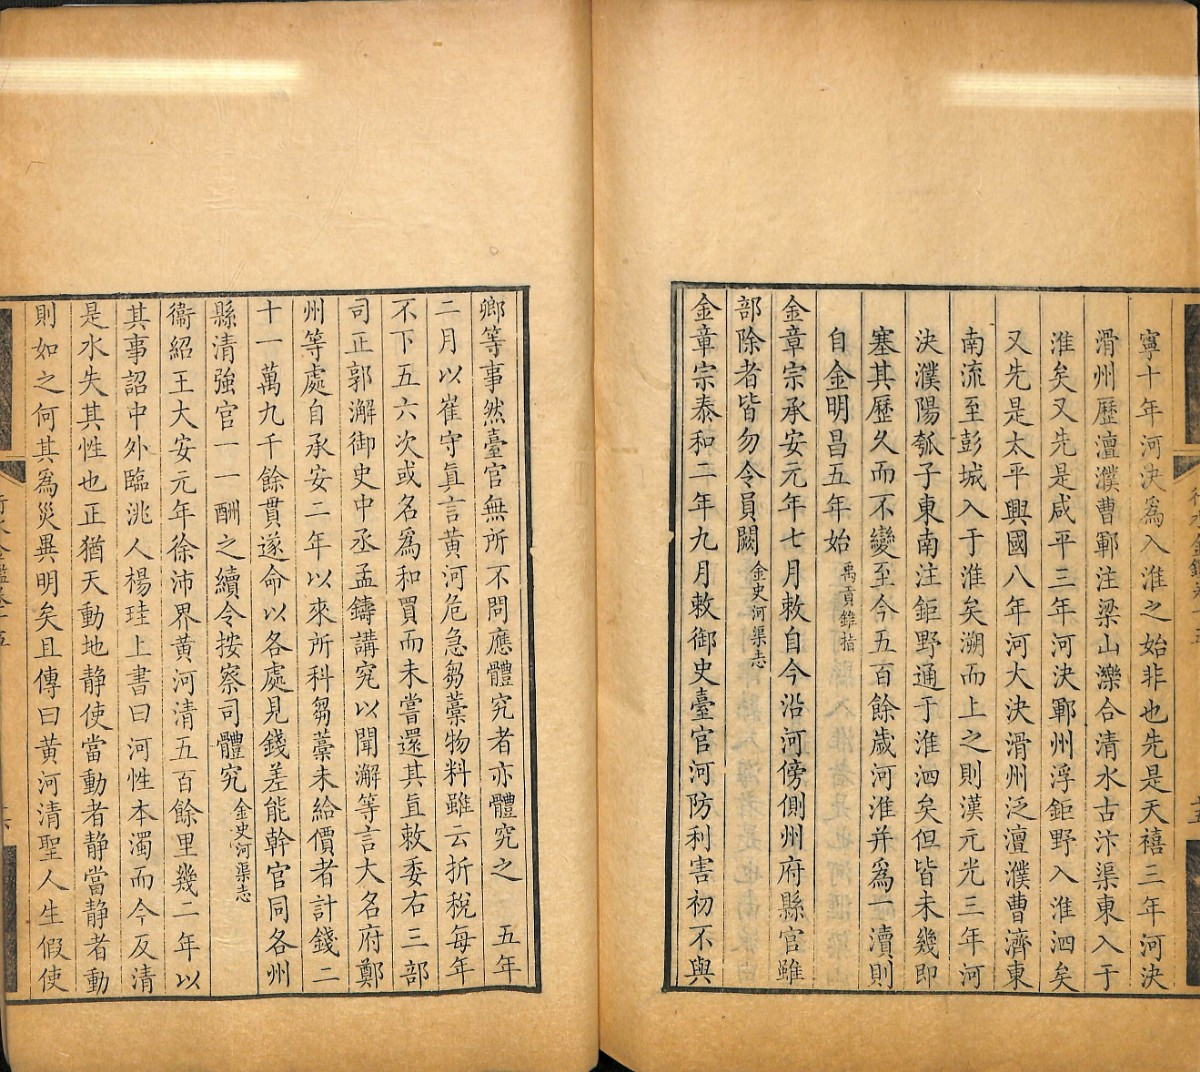 寧十年河決為入淮之始非也先是天禧三年河決
滑州歷澶濮曹鄆注梁山濼合清水古汴渠東入于
淮矣又先是咸平三年河決鄆州浮鉅野入淮泗矣
又先是太平興國八年河大決滑州泛澶濮曹濟東
南流至彭城入于淮矣溯而上之則漢元光三年河
決濮陽瓠子東南注鉅野通于淮泗矣但皆未幾即
塞其歷久而不變至今五百餘歲河淮并為一瀆則
自金明昌五年始禹貢錐指
金章宗承安元年七月敕自今沿河傍側州府縣官雖
部除者皆勿令員闕金史河渠志
金章宗泰和二年九月敕御史臺官河防利害初不與
鄉等事然臺官無所不問應體究者亦體究之 五年
二月以崔守真言黃河危急芻藁物料雖云折稅每年
不下五六次或名為和買而未嘗還其直敕委右三部
司正郭澥御史中丞孟鑄講究以聞澥等言大名府鄭
州等處自承安二年以來所科芻藁未給價者計錢二
十一萬九千餘貫遂命以各處見錢差能幹官同各州
縣清強官一一酬之續令按察司體究金史河渠志
衞紹王大安元年徐沛界黃河清五百餘里幾二年以
其事詔中外臨洮人楊珪上書曰河性本濁而今反清
是水失其性也正猶天動地静使當動者静當静者動
則如之何其為災異明矣且傳曰黃河清聖人生假使